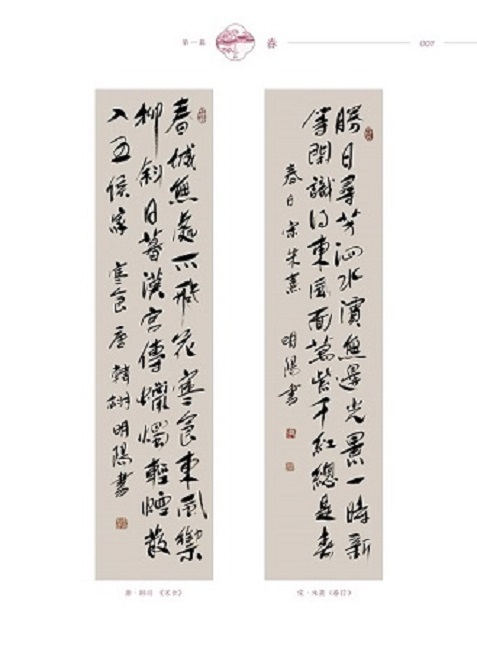 第一篇
春
007
春城無處不飛花寒食東風御
柳斜日暮漢宮傳蠟燭輕煙散
入五侯家 寒食 唐 韓翃 明陽書
勝日尋芳泗水濱無邊光景一時新
等閑識得東風面萬紫千紅總是春
春日 宋 朱熹 明陽書
唐·韩翃《寒食》
宋·朱熹《春日》